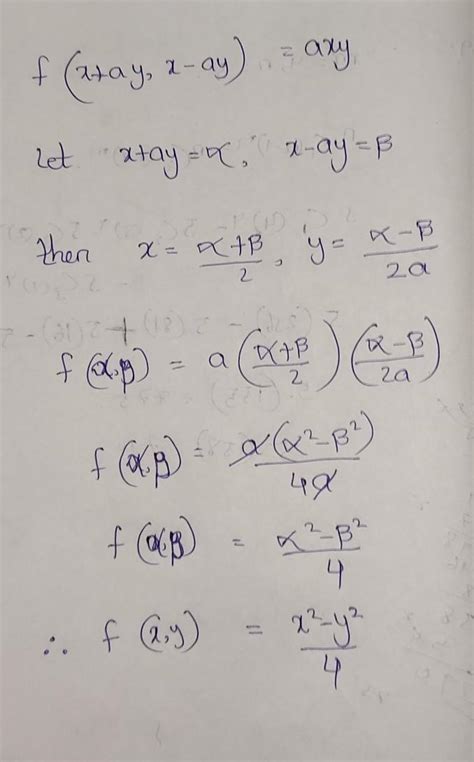 f (x+ay, x-ay) = axy
Let x+ay=α, x-ay=β
then x = (α+β)/2, y = (α-β)/2a
f (α,β) = a((α+β)/2)((α-β)/2a)
f (α,β) = a(α²-β²)/4a
f (α,β) = (α²-β²)/4
∴ f (x,y) = (x²-y²)/4